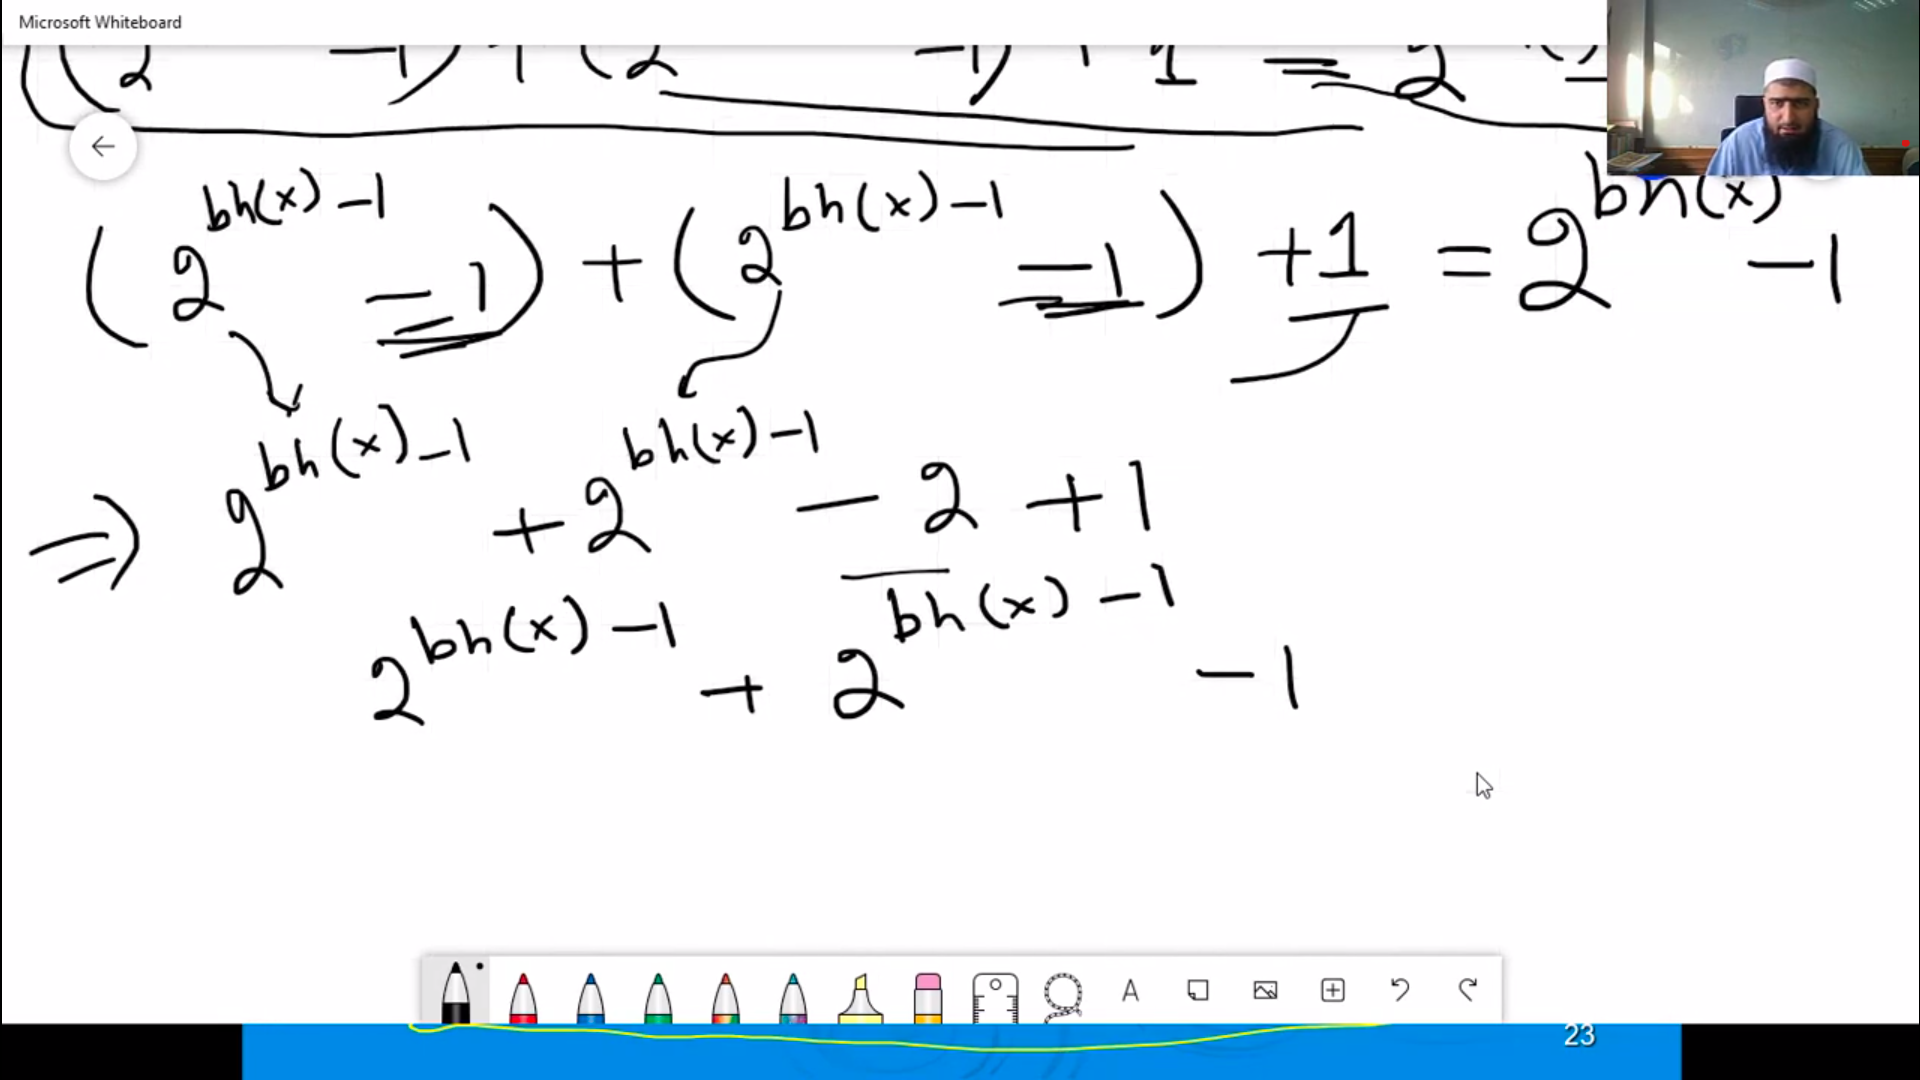 Microsoft Whiteboard
(2 -1) + (2 -1) + 1 = 2
(2^bh(x)-1 -1) + (2^bh(x)-1 -1) +1 = 2^bh(x) -1
⇒ 2^bh(x)-1 +2^bh(x)-1 - 2 + 1
2^bh(x)-1 + 2^bh(x)-1 -1
A
23